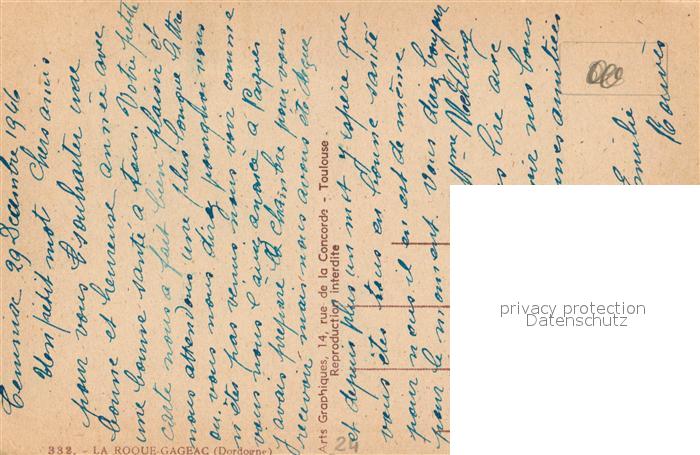 Cenniac 29 Decembre 1946
Un petit mot Chers amis
pour vous souhaiter une
bonne et heureuse année avec
une bonne santé à tous. Votre petite
carte nous a fait bien plaisir et
nous attendons une plus longue lettre
ou vous nous direz pourquoi vous
n'êtes pas venus nous voir comme
vous nous l'aviez annoncé à Pâques
J'avais préparé la chambre pour vous
recevoir mais nous avons été
et depuis plus un mot j'espère que
vous êtes tous en bonne santé
pour nous il en est de même
pour le moment. Vous
Mme
lire avec
nos bons
amitiés
Emile
Arts Graphiques, 14, rue de la Concorde - Toulouse
Reproduction interdite
332. - LA ROQUE-GAGEAC (Dordogne)
24
privacy protection
Datenschutz